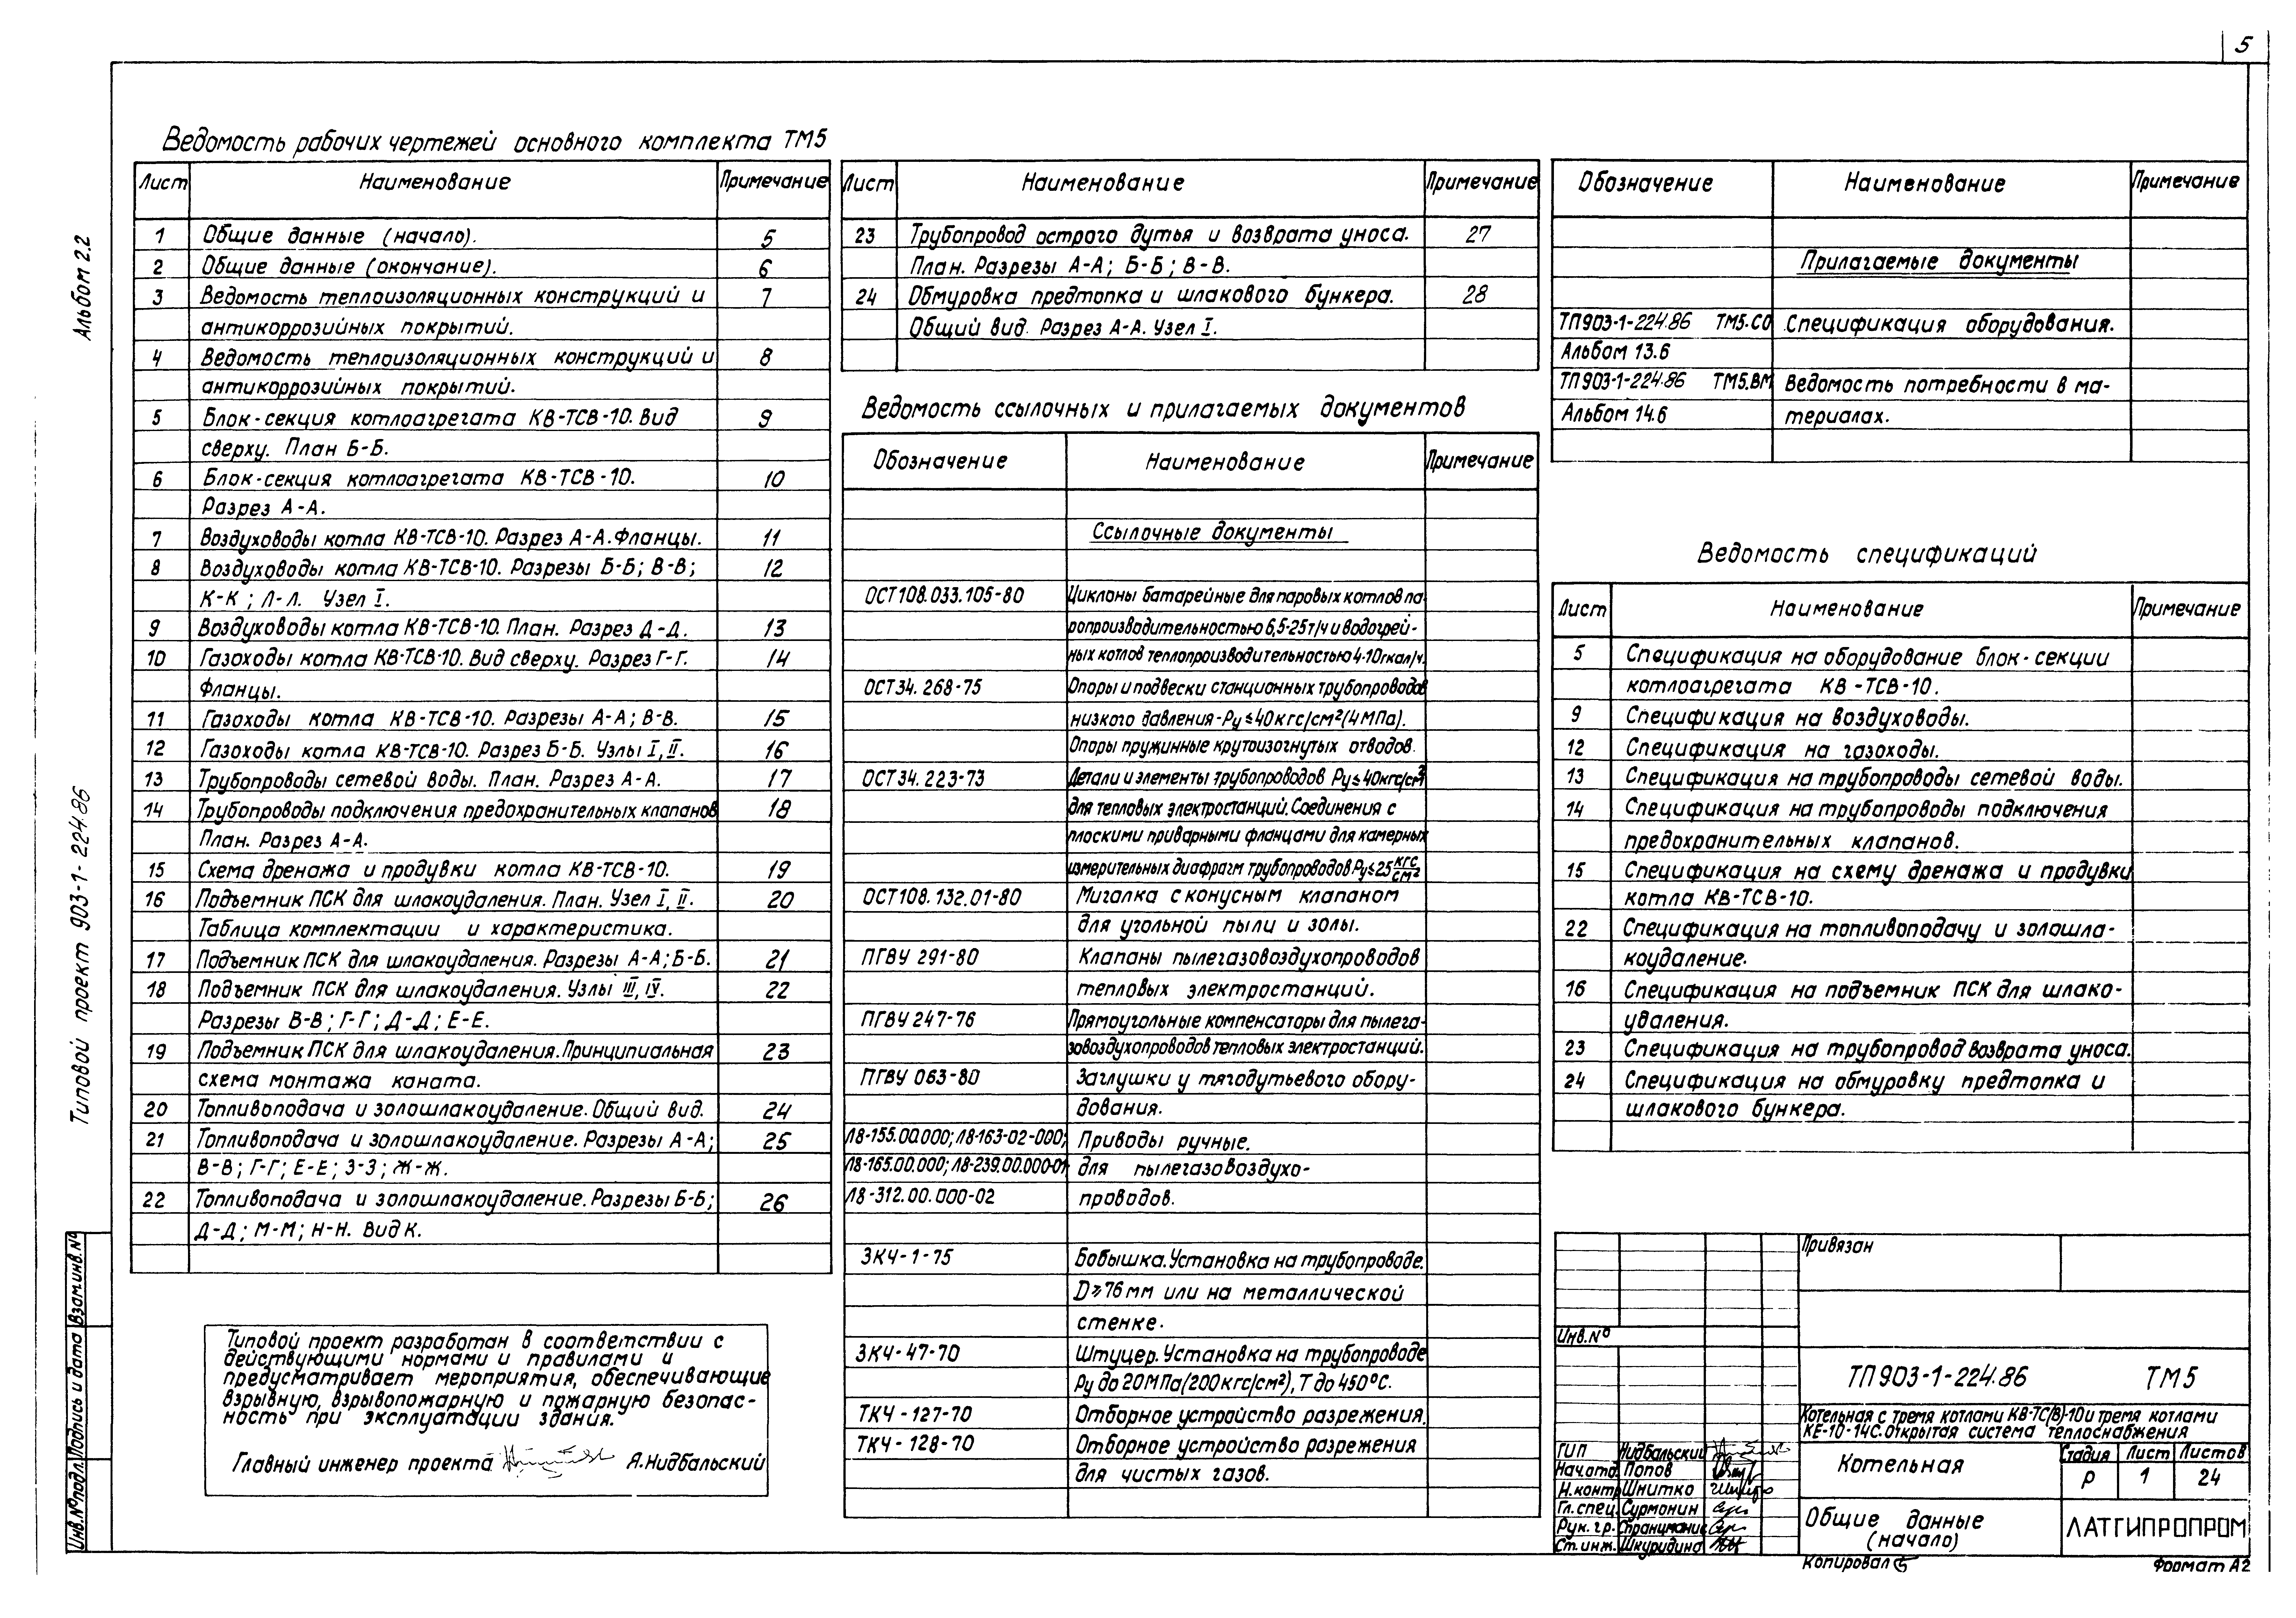 5
Альбом 2.2
Типовой проект 903-1-224.86
Взам.инв.№
Подпись и дата
Инв.№подл.
Ведомость рабочих чертежей основного комплекта ТМ5
Лист Наименование Примечание
1 Общие данные (начало). 5
2 Общие данные (окончание). 6
3 Ведомость теплоизоляционных конструкций и 7
антикоррозийных покрытий.
4 Ведомость теплоизоляционных конструкций и 8
антикоррозийных покрытий.
5 Блок-секция котлоагрегата КВ-ТСВ-10. Вид 9
сверху. План Б-Б.
6 Блок-секция котлоагрегата КВ-ТСВ-10. 10
Разрез А-А.
7 Воздуховоды котла КВ-ТСВ-10. Разрез А-А. Фланцы. 11
8 Воздуховоды котла КВ-ТСВ-10. Разрезы Б-Б; В-В; 12
К-К; Л-Л. Узел I.
9 Воздуховоды котла КВ-ТСВ-10. План. Разрез Д-Д. 13
10 Газоходы котла КВ-ТСВ-10. Вид сверху. Разрез Г-Г. 14
Фланцы.
11 Газоходы котла КВ-ТСВ-10. Разрезы А-А; В-В. 15
12 Газоходы котла КВ-ТСВ-10. Разрез Б-Б. Узлы I, II. 16
13 Трубопроводы сетевой воды. План. Разрез А-А. 17
14 Трубопроводы подключения предохранительных клапанов 18
План. Разрез А-А.
15 Схема дренажа и продувки котла КВ-ТСВ-10. 19
16 Подъемник ПСК для шлакоудаления. План. Узел I, II. 20
Таблица комплектации и характеристика.
17 Подъемник ПСК для шлакоудаления. Разрезы А-А; Б-Б. 21
18 Подъемник ПСК для шлакоудаления. Узлы III, IV. 22
Разрезы В-В; Г-Г; Д-Д; Е-Е.
19 Подъемник ПСК для шлакоудаления. Принципиальная 23
схема монтажа каната.
20 Топливоподача и золошлакоудаление. Общий вид. 24
21 Топливоподача и золошлакоудаление. Разрезы А-А; 25
В-В; Г-Г; Е-Е; З-З; Ж-Ж.
22 Топливоподача и золошлакоудаление. Разрезы Б-Б; 26
Д-Д; М-М; Н-Н. Вид К.
Типовой проект разработан в соответствии с
действующими нормами и правилами и
предусматривает мероприятия, обеспечивающие
взрывную, взрывопожарную и пожарную безопас-
ность при эксплуатации здания.
Главный инженер проекта Я.Нидбальский
Лист Наименование Примечание
23 Трубопровод острого дутья и возврата уноса. 27
План. Разрезы А-А; Б-Б; В-В.
24 Обмуровка предтопка и шлакового бункера. 28
Общий вид. Разрез А-А. Узел I.
Ведомость ссылочных и прилагаемых документов
Обозначение Наименование Примечание
Ссылочные документы
ОСТ108.033.105-80 Циклоны батарейные для паровых котлов па-
ропроизводительностью 6,5-25т/ч и водогрей-
ных котлов теплопроизводительностью 4-10гкал/ч.
ОСТ34.268-75 Опоры и подвески станционных трубопроводов
низкого давления-Ру≤40кгс/см²(4МПа).
Опоры пружинные крутоизогнутых отводов.
ОСТ34.223-73 Детали и элементы трубопроводов Ру≤40кгс/см²
для тепловых электростанций. Соединения с
плоскими приварными фланцами для камерных
измерительных диафрагм трубопроводов Ру≤25 кгс/см²
ОСТ108.132.01-80 Мигалка с конусным клапаном
для угольной пыли и золы.
ПГВУ 291-80 Клапаны пылегазовоздухопроводов
тепловых электростанций.
ПГВУ 247-76 Прямоугольные компенсаторы для пылега-
зовоздухопроводов тепловых электростанций.
ПГВУ 063-80 Заглушки у тягодутьевого обору-
дования.
Л8-155.00.000; Л8-163-02-000; Приводы ручные.
Л8-165.00.000; Л8-239.00.000-01 для пылегазовоздухо-
Л8-312.00.000-02 проводов.
ЗКЧ-1-75 Бобышка. Установка на трубопроводе.
D≥76мм или на металлической
стенке.
ЗКЧ-47-70 Штуцер. Установка на трубопроводе
Ру до 20МПа(200кгс/см²), Т до 450°С.
ТКЧ-127-70 Отборное устройство разрежения.
ТКЧ-128-70 Отборное устройство разрежения
для чистых газов.
Обозначение Наименование Примечание
Прилагаемые документы
ТП903-1-224.86 ТМ5.СО Спецификация оборудования.
Альбом 13.6
ТП903-1-224.86 ТМ5.ВМ Ведомость потребности в ма-
Альбом 14.6 териалах.
Ведомость спецификаций
Лист Наименование Примечание
5 Спецификация на оборудование блок-секции
котлоагрегата КВ-ТСВ-10.
9 Спецификация на воздуховоды.
12 Спецификация на газоходы.
13 Спецификация на трубопроводы сетевой воды.
14 Спецификация на трубопроводы подключения
предохранительных клапанов.
15 Спецификация на схему дренажа и продувки
котла КВ-ТСВ-10.
22 Спецификация на топливоподачу и золошла-
коудаление.
16 Спецификация на подъемник ПСК для шлако-
удаления.
23 Спецификация на трубопровод возврата уноса.
24 Спецификация на обмуровку предтопка и
шлакового бункера.
Привязан
Инв.№
ТП903-1-224.86 ТМ5
Котельная с тремя котлами КВ-ТС(В)-10 и тремя котлами
КЕ-10-14С. Открытая система теплоснабжения
ГИП Нидбальский
Нач.отд. Попов
Н.контр Шнитко
Гл.спец. Сурмонин
Рук.гр. Спранцманис
Ст.инж. Шкуридина
Котельная
Стадия Лист Листов
Р 1 24
Общие данные
(начало)
ЛАТГИПРОПРОМ
Копировал
Формат А2